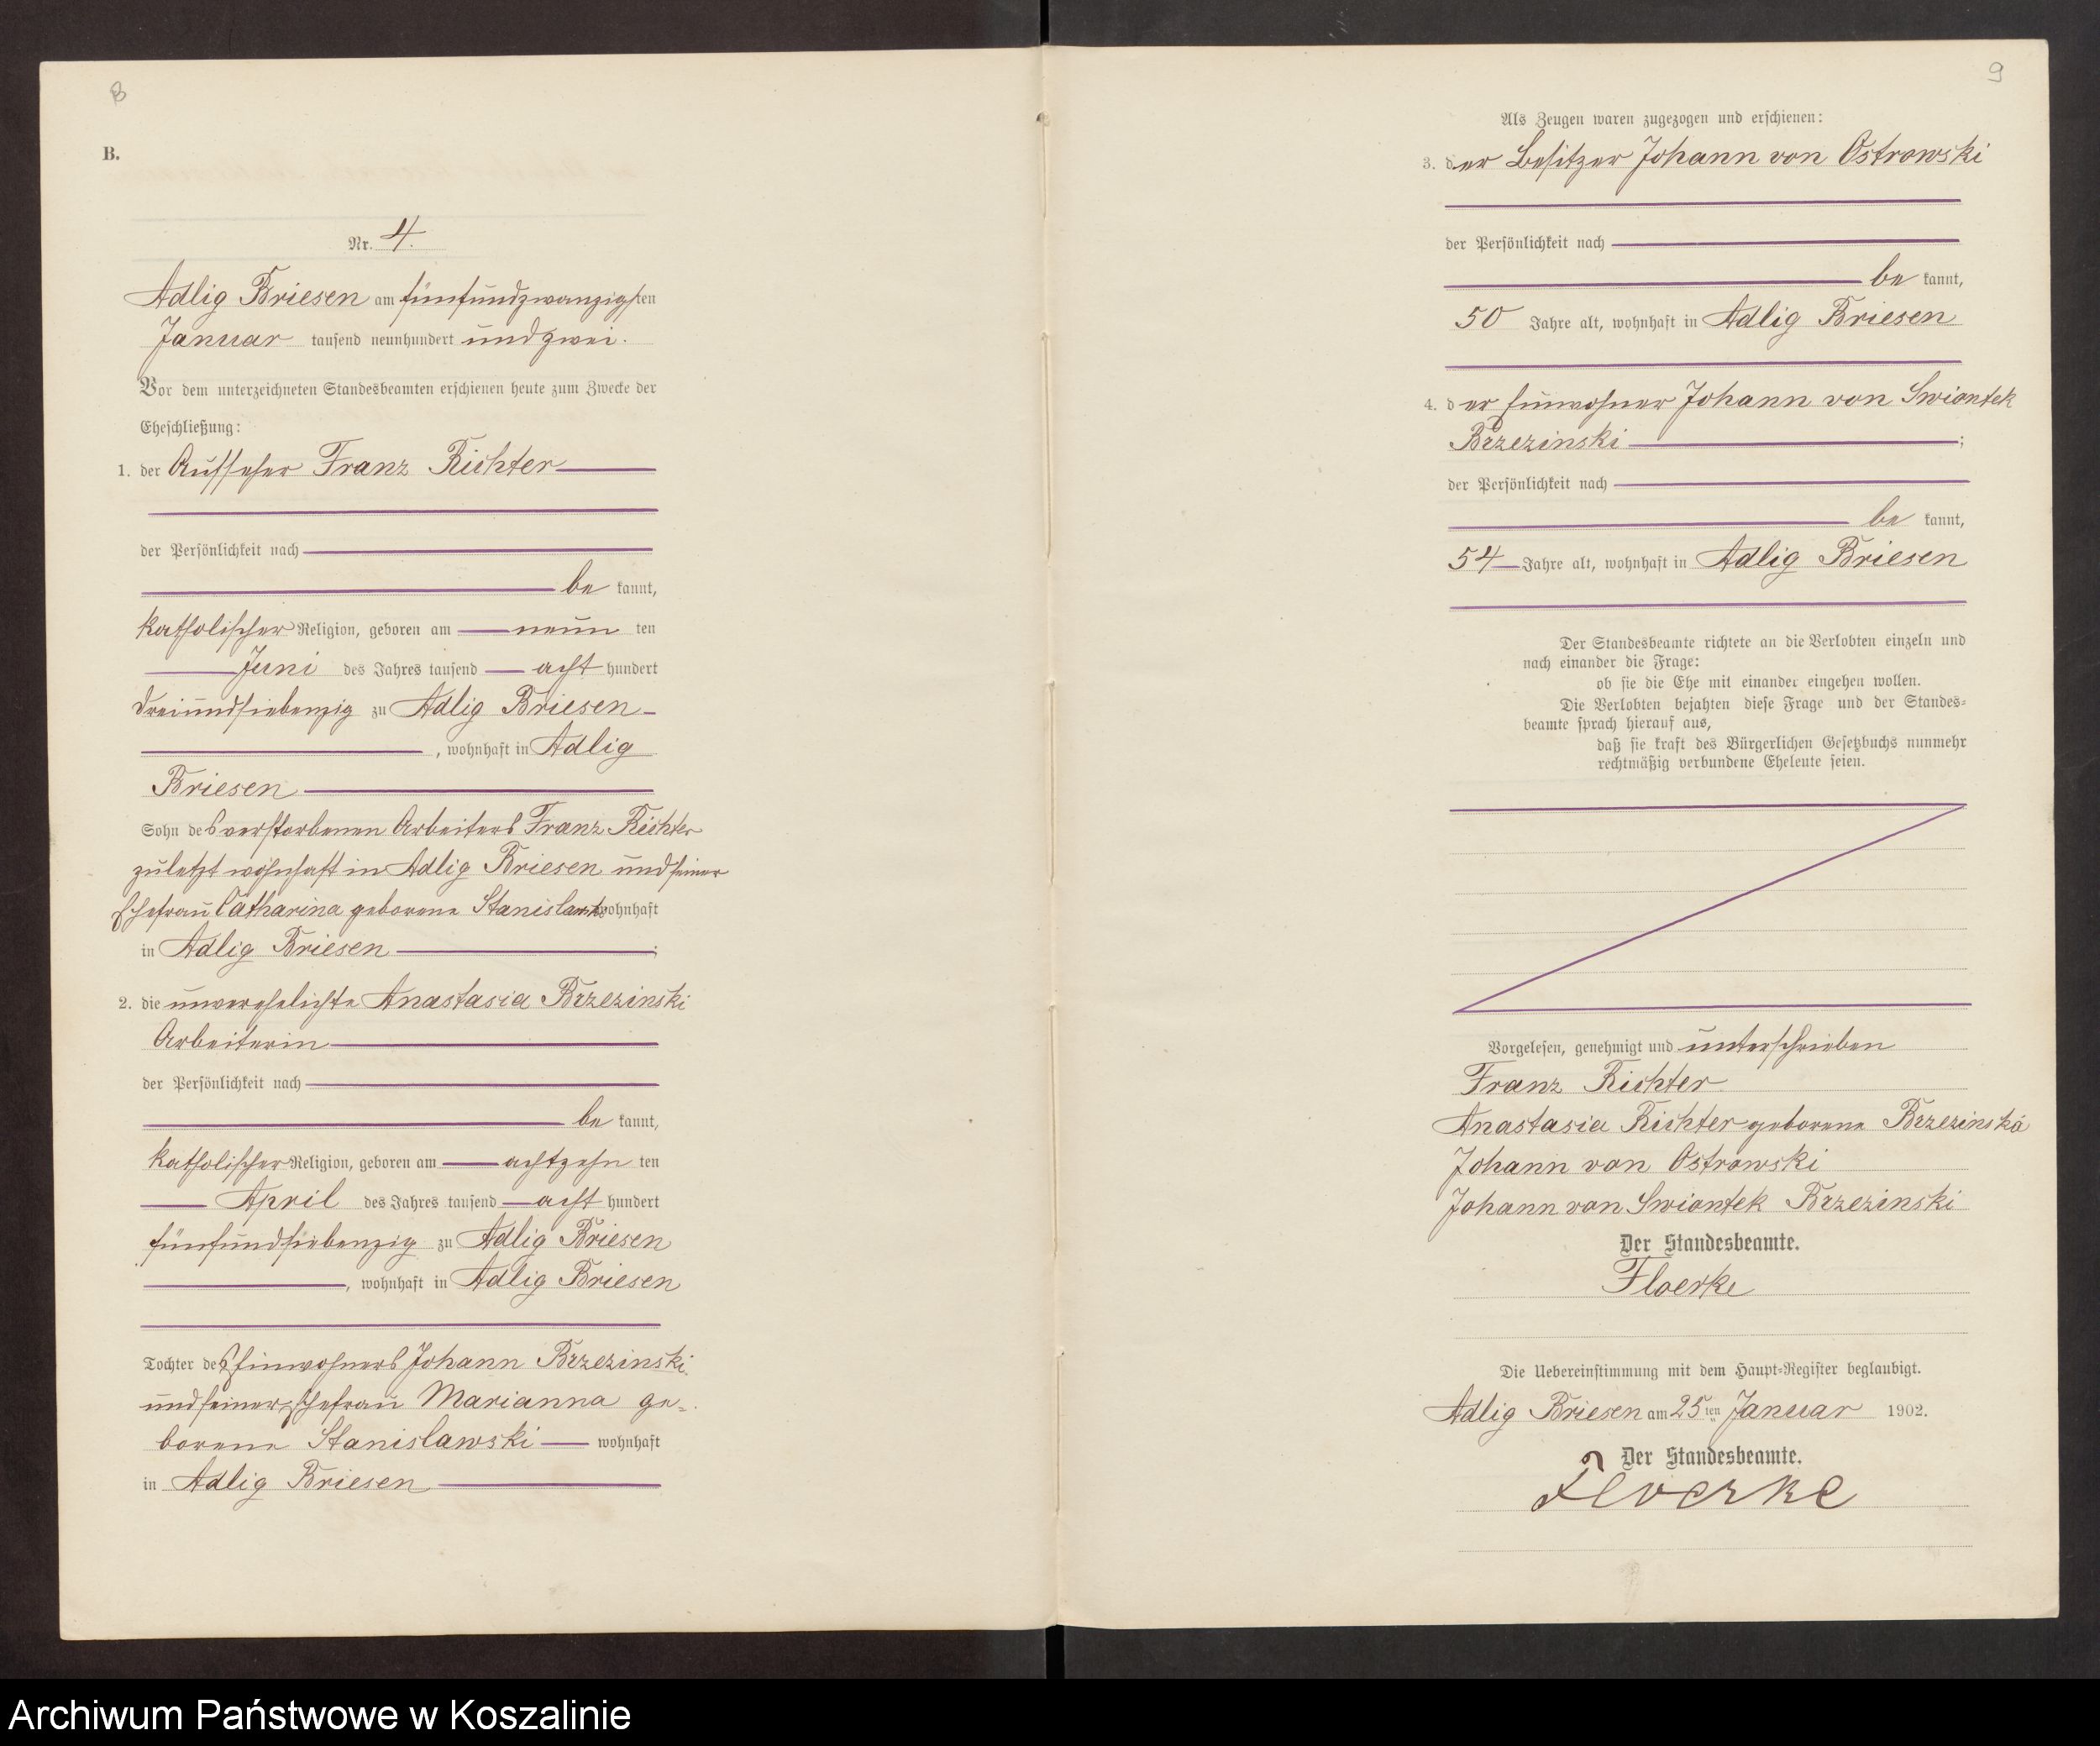 8
B.
Nr. 4.
Adlig Briesen am fünfundzwanzigsten
Januar tausend neunhundert und zwei.
Vor dem unterzeichneten Standesbeamten erschienen heute zum Zwecke der
Eheschließung:
1. der Aufseher Franz Richter
der Persönlichkeit nach
be kannt,
katholischer Religion, geboren am neun ten
Juni des Jahres tausend acht hundert
dreiundsiebenzig zu Adlig Briesen
, wohnhaft in Adlig
Briesen
Sohn des verstorbenen Arbeiters Franz Richter
zuletzt wohnhaft in Adlig Briesen und seiner
Ehefrau Catharina geborene wohnhaft
in Adlig Briesen ;
2. die unverehelichte Anastasia Brzezinski
Arbeiterin
der Persönlichkeit nach
be kannt,
katholischer Religion, geboren am achtzehn ten
April des Jahres tausend acht hundert
fünfundsiebenzig zu Adlig Briesen
, wohnhaft in Adlig Briesen
Tochter des Einwohners Johann Brzezinski
und seiner Ehefrau Marianna ge=
borene Stanislawski wohnhaft
in Adlig Briesen
9
Als Zeugen waren zugezogen und erschienen:
3. der Besitzer Johann von Ostrowski
der Persönlichkeit nach
be kannt,
50 Jahre alt, wohnhaft in Adlig Briesen
4. der Einwohner Johann von Swiontek
Brzezinski ;
der Persönlichkeit nach
be kannt,
54 Jahre alt, wohnhaft in Adlig Briesen
Der Standesbeamte richtete an die Verlobten einzeln und
nach einander die Frage:
ob sie die Ehe mit einander eingehen wollen.
Die Verlobten bejahten diese Frage und der Standes=
beamte sprach hierauf aus,
daß sie kraft des Bürgerlichen Gesetzbuchs nunmehr
rechtmäßig verbundene Eheleute seien.
Vorgelesen, genehmigt und unterschrieben
Franz Richter
Anastasia Richter geborene Brzezinská
Johann von Ostrowski
Johann von Swiontek Brzezinski
Der Standesbeamte.
Floerke
Die Uebereinstimmung mit dem Haupt=Register beglaubigt.
Adlig Briesen am 25 ten Januar 1902.
Der Standesbeamte.
Floerke
Archiwum Państwowe w Koszalinie